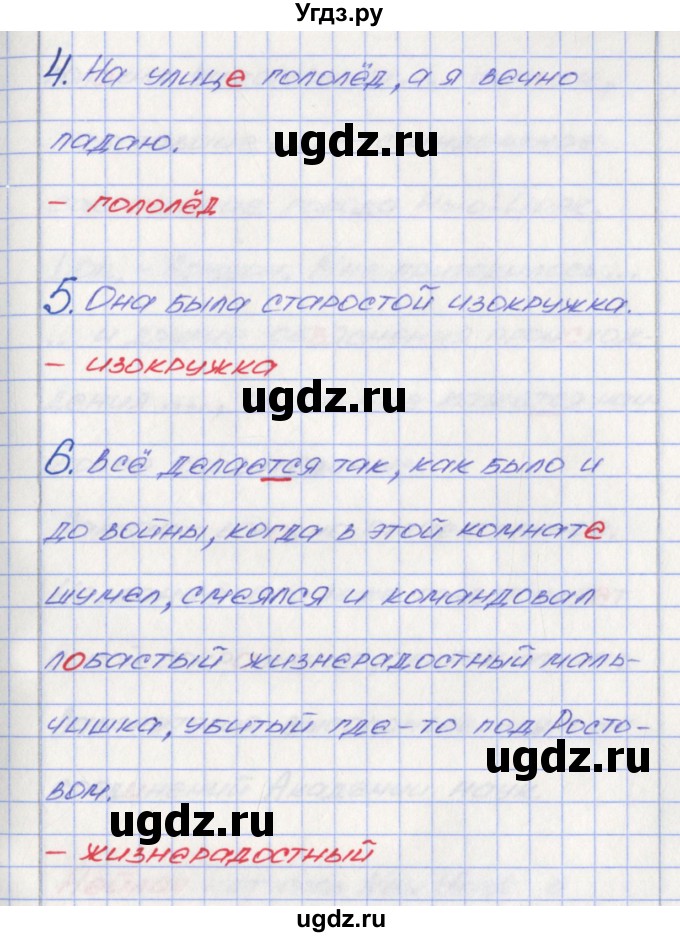 Угдз.ру
4. На улице гололёд, а я вечно
падаю.
ugdz.ru
– гололёд
5. Она была старостой изокружка.
– изокружка
ugdz.ru
6. Всё делается так, как было и
до войны, когда в этой комнате
шумел, смеялся и командовал
лобастый жизнерадостный маль-
чишка, убитый где-то под Росто-
ugdz.ru
вом.
ugdz.ru
– жизнерадостный
ugdz.ru